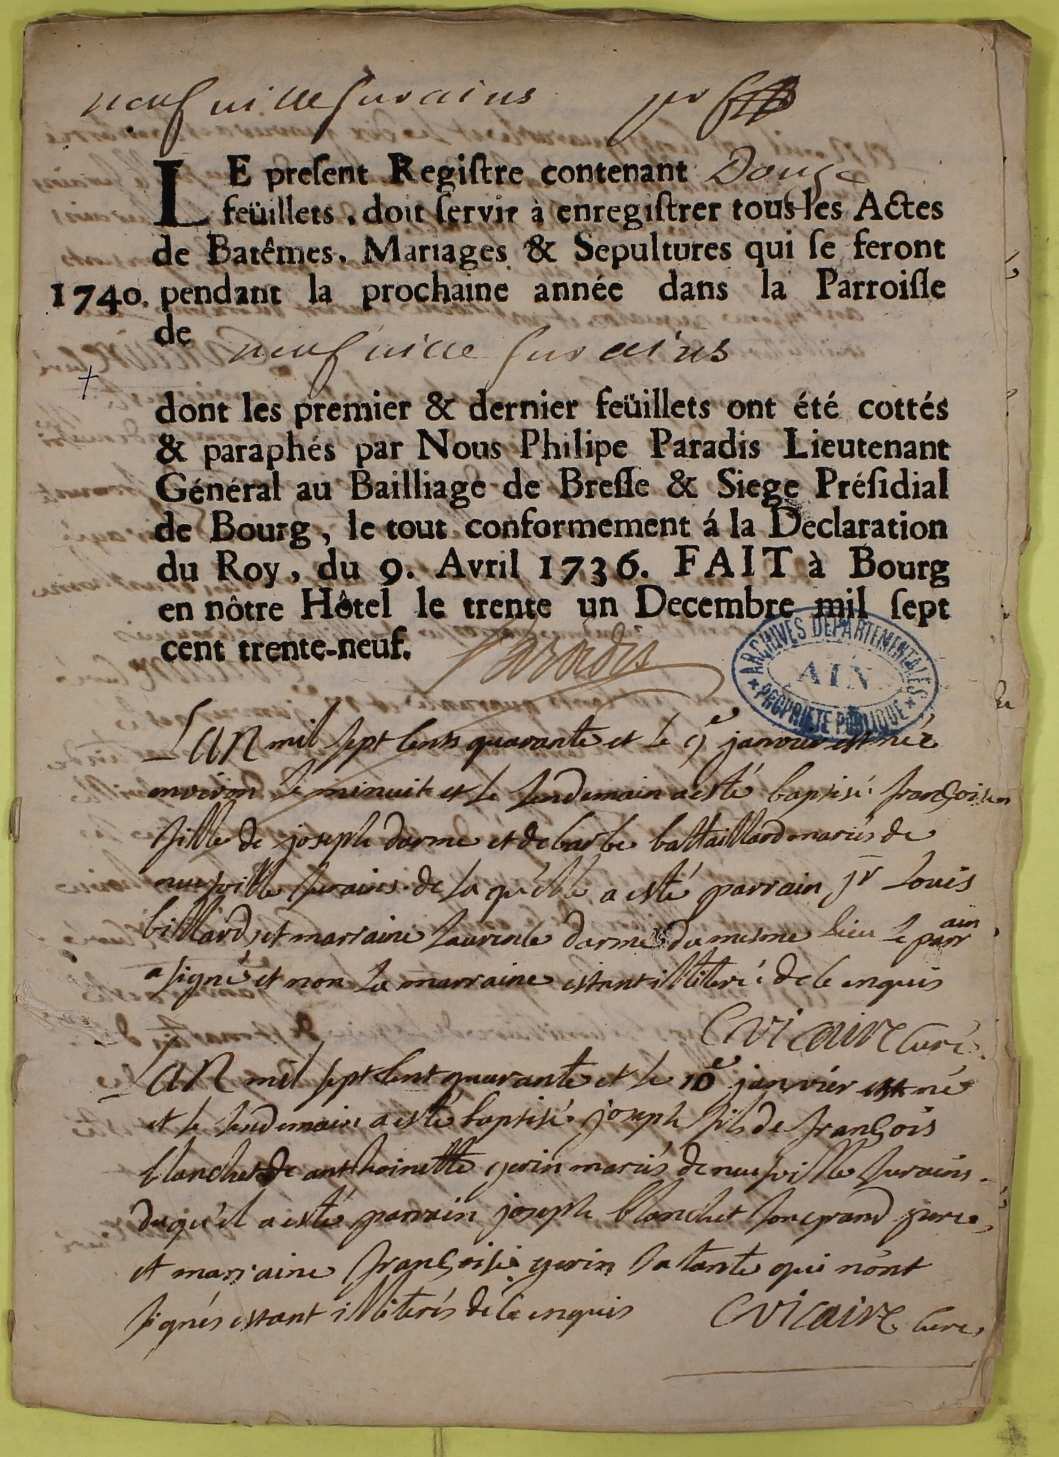 neufuille sur ains
LE present Registre contenant Douze
feüillets, doit servir à enregistrer tous les Actes
de Batêmes, Mariages & Sepultures qui se feront
1740. pendant la prochaine année dans la Parroisse
de
neufuille sur ains
dont les premier & dernier feüillets ont été cottés
& paraphés par Nous Philipe Paradis Lieutenant
Général au Bailliage de Bresse & Siege Présidial
de Bourg, le tout conformement á la Declaration
du Roy, du 9. Avril 1736. FAIT à Bourg
en nôtre Hôtel le trente un Decembre mil sept
cent trente-neuf. Paradis
ARCHIVES DEPARTEMENTALES
AIN
PROPRIETE PUBLIQUE
L'an mil sept cents quarante et le janvier est née
environ le minuit et le lendemain a esté baptisé françoise
fille de joseph darme et de barbe battaillard mariés de
neufville surains de la qu'elle a esté parrain Louis
billard, et marraine Laurence darme du mesme lieu le parrain
a signé et non la marraine estant illiteré de ce enquis
Cvicaire Curé
L'an mil sept cent quarante et le 10e janvier est né
et le lendemain a esté baptisé joseph fils de françois
blanchet de anthoinette gerin mariés de neufville surains
duqu'el a esté parrain joseph blanchet son grand pere,
et marraine françoise gerin sa tante qui n'ont
signés estant illiterés de ce enquis Cvicaire Curé